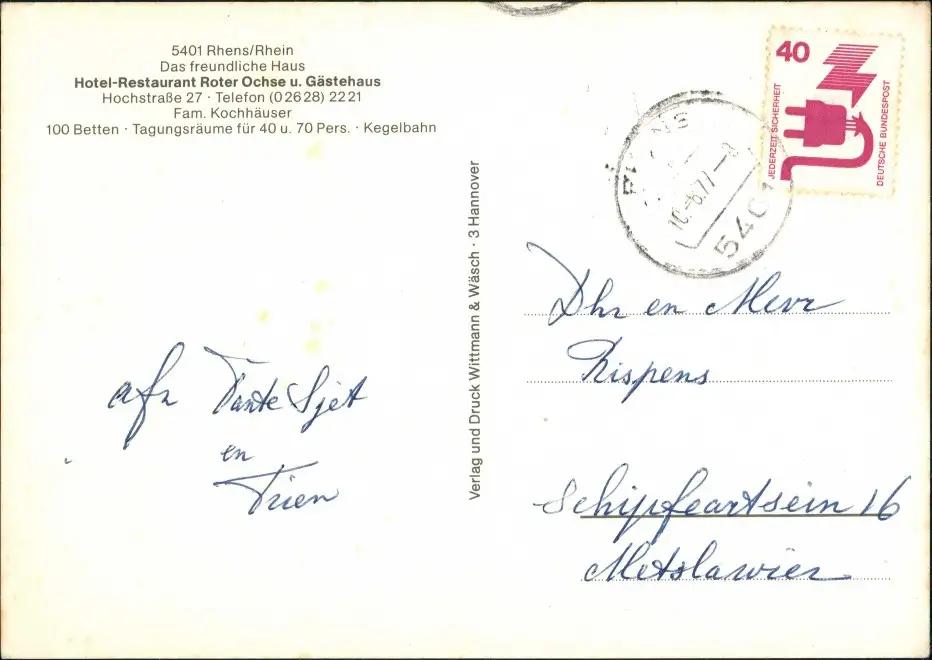 5401 Rhens/Rhein
Das freundliche Haus
Hotel-Restaurant Roter Ochse u. Gästehaus
Hochstraße 27 · Telefon (0 26 28) 22 21
Fam. Kochhäuser
100 Betten · Tagungsräume für 40 u. 70 Pers. · Kegelbahn
afz Tante Sjet
en
Trien
Verlag und Druck Wittmann & Wäsch · 3 Hannover
40
JEDERZEIT SICHERHEIT
DEUTSCHE BUNDESPOST
RHENS
10.-6.77-8
5401
Dhr en Mevr
Rispens
Schipfeartsein 16
Metslawier